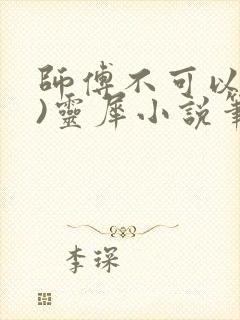 師傅不可以
)靈犀小說筆
李琛